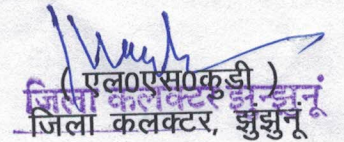 ( एल०एस०कुडी )
जिला कलक्टर झुंन्झुनूं
जिला कलक्टर, झुंझुनूं